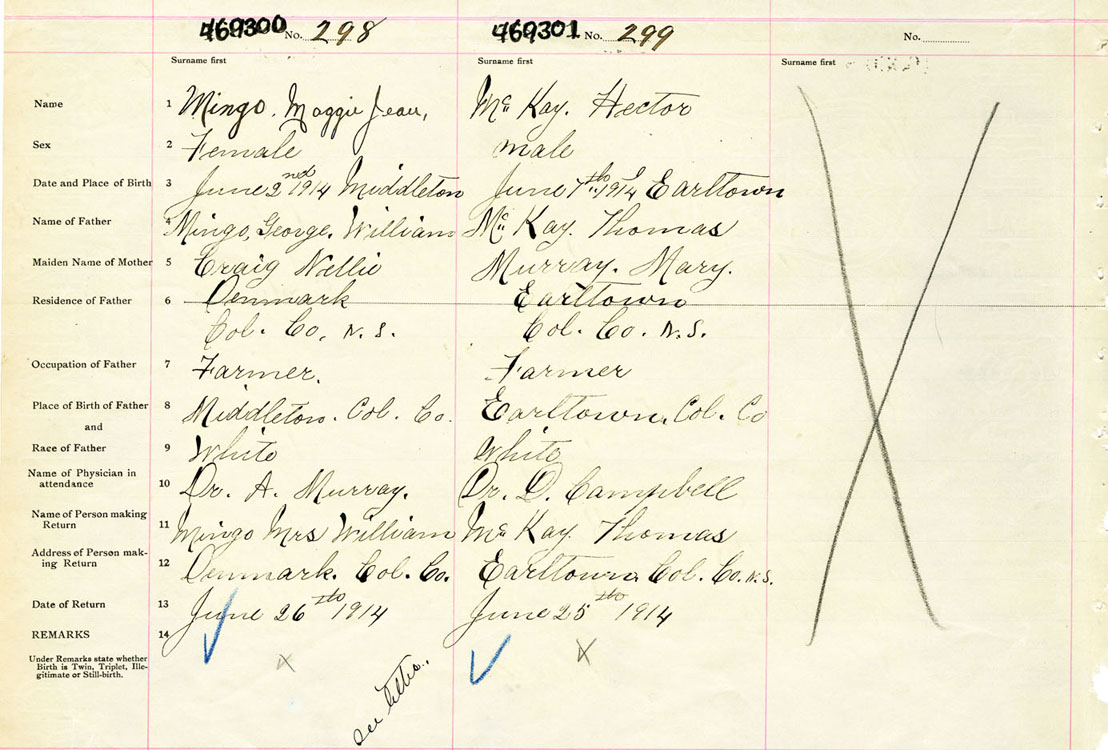 469300 No. 298 469301 No. 299 No.
Surname first Surname first Surname first
Name 1 Mingo, Maggie Jean, Mc Kay. Hector
Sex 2 Female male
Date and Place of Birth 3 June 2nd 1914 Middleton June 7th 1914 Earltown
Name of Father 4 Mingo, George. William Mc Kay. Thomas
Maiden Name of Mother 5 Craig Nellie Murray. Mary.
Residence of Father 6 Denmark Earltown
Col. Co. N.S. Col. Co. N.S.
Occupation of Father 7 Farmer. Farmer
Place of Birth of Father 8 Middleton. Col. Co. Earltown. Col. Co
and
Race of Father 9 White White
Name of Physician in
attendance 10 Dr. A. Murray. Dr. D. Campbell
Name of Person making
Return 11 Mingo Mrs William Mc Kay. Thomas
Address of Person mak-
ing Return 12 Denmark. Col. Co. Earltown Col. Co. N.S.
Date of Return 13 June 26th 1914 June 25th 1914
REMARKS 14
Under Remarks state whether
Birth is Twin, Triplet, Ille-
gitimate or Still-birth.
see letter.